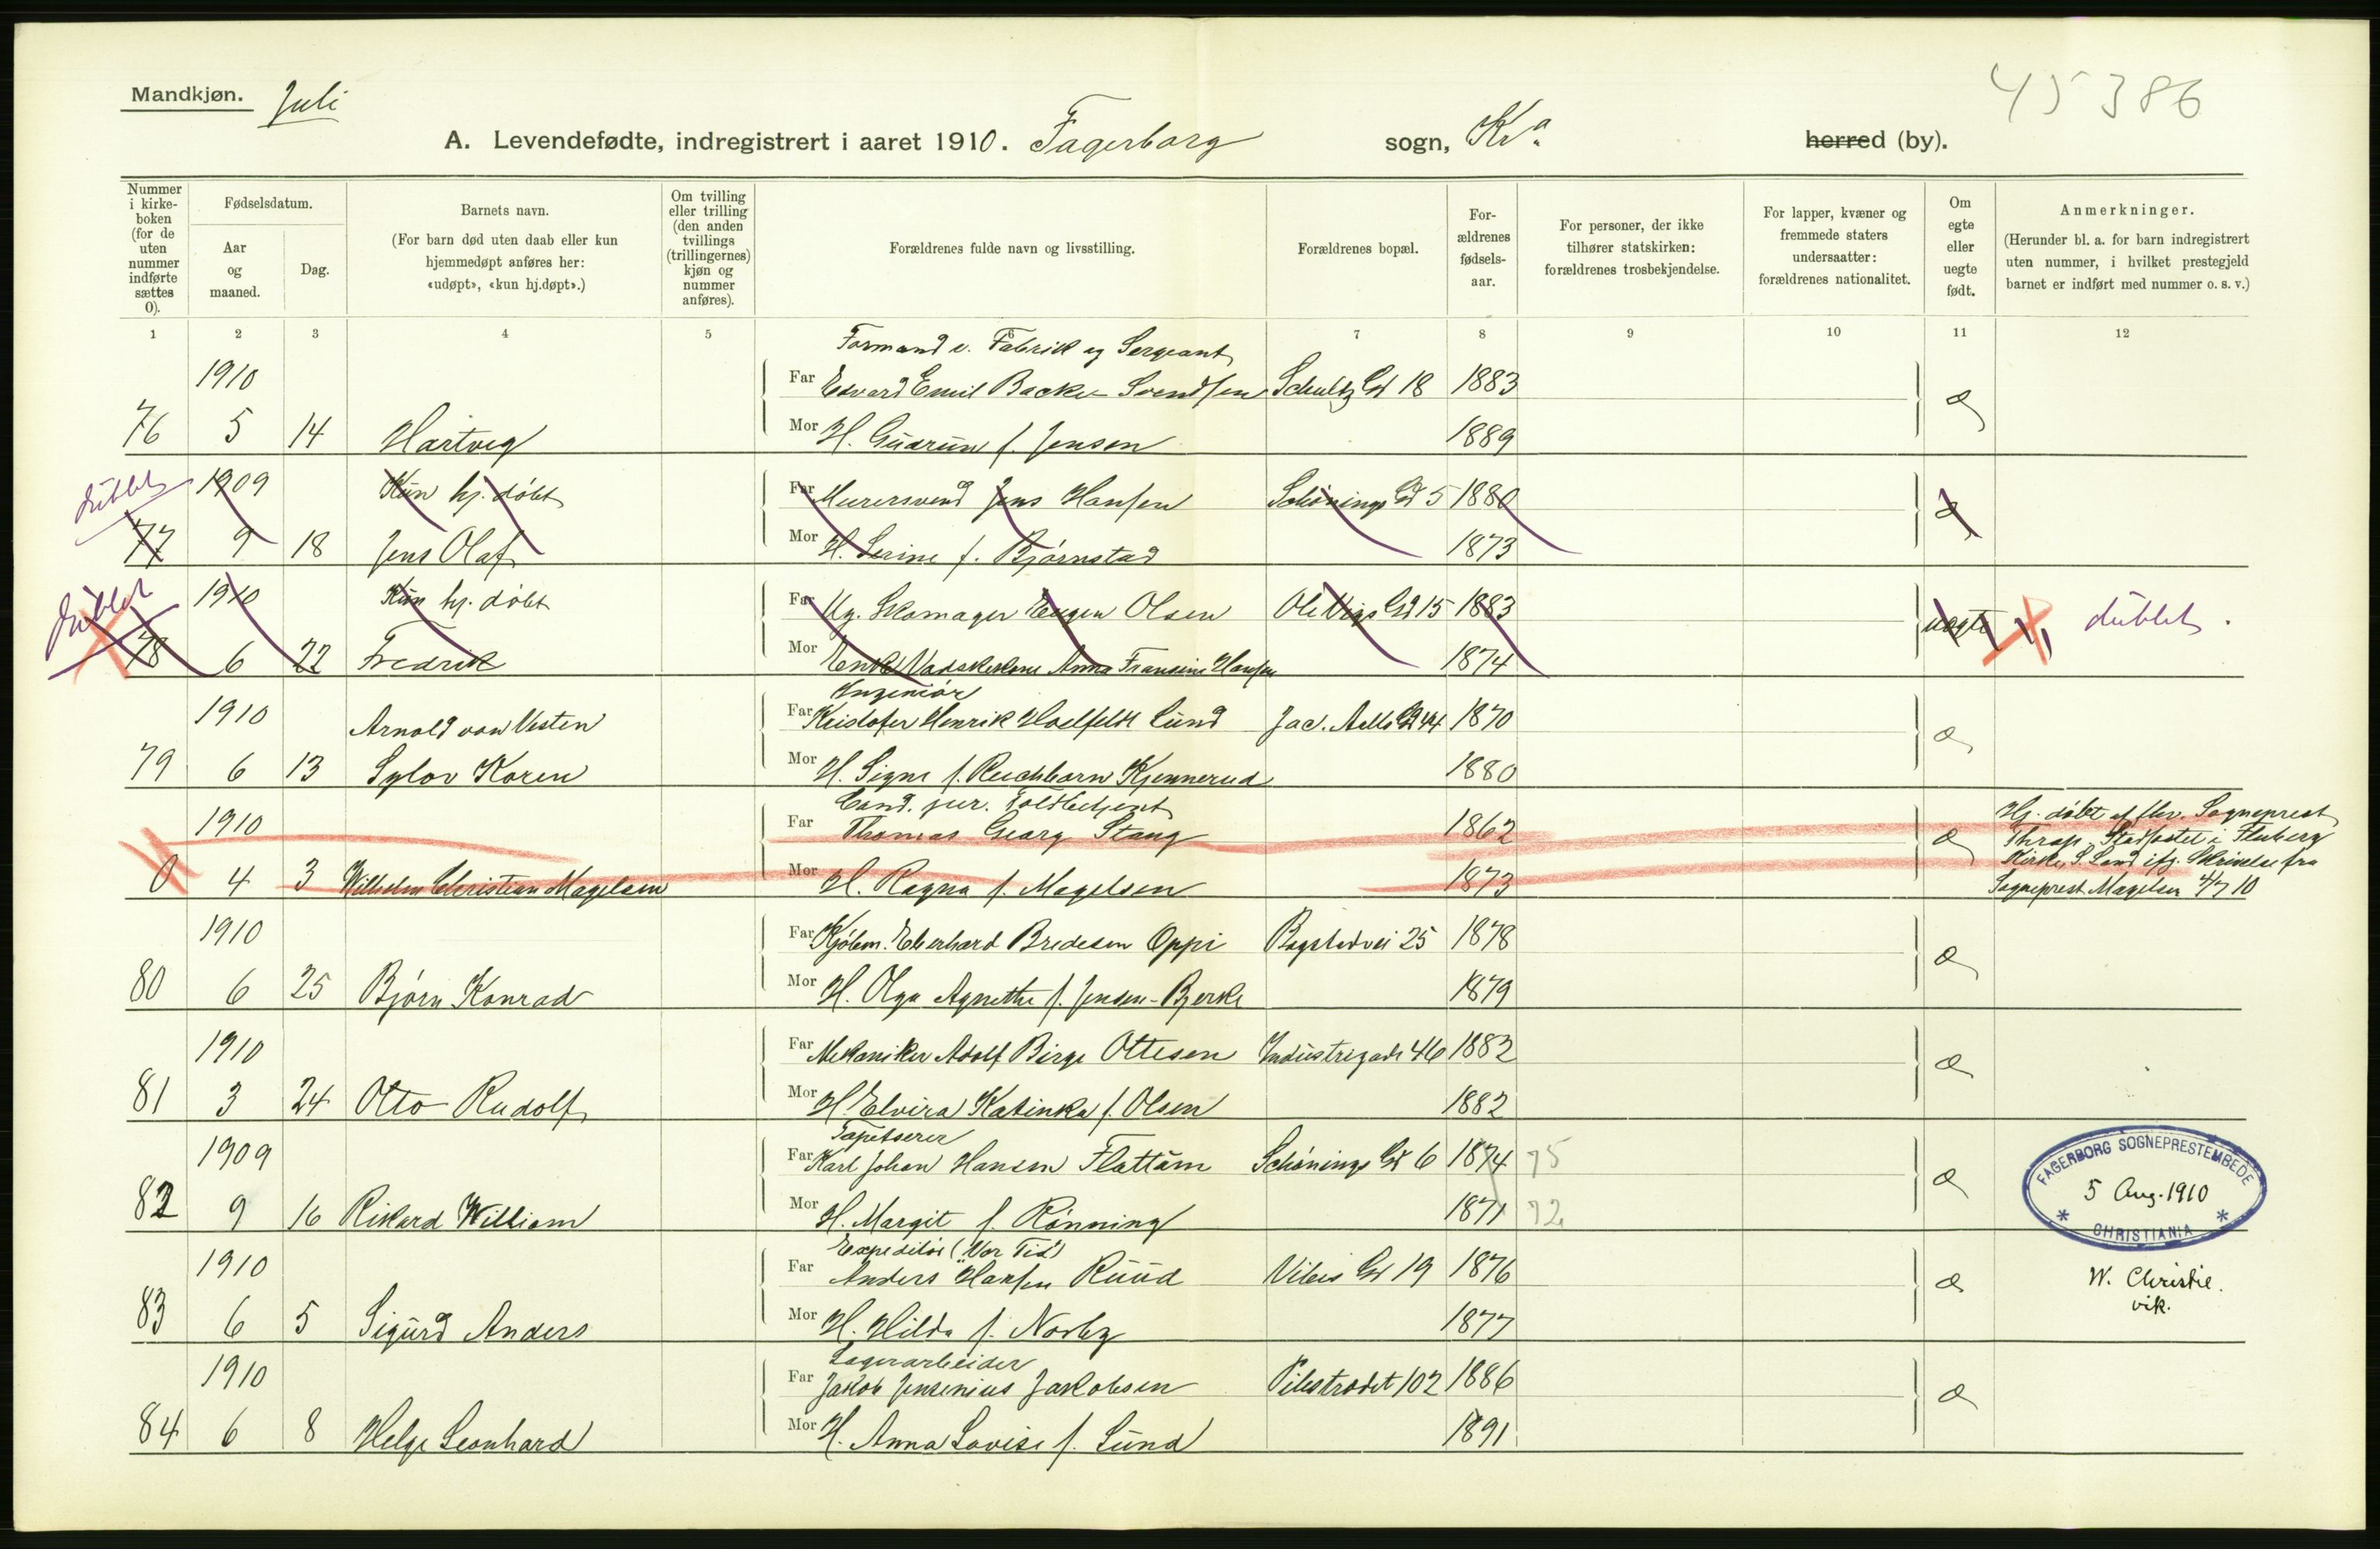 Mandkjøn. Juli
45386
A. Levendefødte, indregistrert i aaret 1910. Fagerborg sogn, Kra. herred (by).
Nummer i kirkeboken (for de uten nummer indførte sættes 0).
Fødselsdatum.
Aar og maaned.
Dag.
Barnets navn.
(For barn død uten daab eller kun hjemmedøpt anføres her: «udøpt», «kun hj.døpt».)
Om tvilling eller trilling (den anden tvillings (trillingernes) kjøn og nummer anføres).
Forældrenes fulde navn og livsstilling.
Forældrenes bopæl.
Forældrenes fødselsaar.
For personer, der ikke tilhører statskirken: forældrenes trosbekjendelse.
For lapper, kvæner og fremmede staters undersaatter: forældrenes nationalitet.
Om egte eller uegte født.
Anmerkninger.
(Herunder bl. a. for barn indregistrert uten nummer, i hvilket prestegjeld barnet er indført med nummer o. s. v.)
1 2 3 4 5 6 7 8 9 10 11 12
Formand v. Fabrik og Sergeant
1910 Far Edvard Emil Backe Svendsen Schultz Gd 18 1883 æ
76 5 14 Hartvig Mor H. Gudrun f. Jensen 1889
dublet 1909 Kun hj. døbt Far Murersvend Jens Hansen Schønings Gd 5 1880 æ
77 9 18 Jens Olaf Mor H. Serine f. Bjørnstad 1873
dublet 1910 Kun hj. døbt Far Ug. Skomager Eugen Olsen Ole Vigs Gd 15 1883 uegte dublet.
78 6 22 Fredrik Mor Enke Vadskekone Anna Fransine Hansen 1874
Ingeniør
1910 Arnold von Westen Far Kristofer Henrik Holfeldt Lund Jac. Aalls Gd 44 1870 æ
79 6 13 Sylov Koren Mor H. Signe f. Ruchborn Kjennerud 1880
Cand. jur. Toldbetjent
1910 Far Thomas Georg Stang 1862 æ
0 4 3 Wilhelm Christian Magelsen Mor H. Ragna f. Magelsen 1873
Hj. døbt af flv. Sogneprest
Thrap. Stadfæstet i Fluberg
Kirke, S. Land ifg. Skrivelse fra
Sogneprest Magelsen 4/7 10
1910 Far Kjøbm. Eberhard Bredesen Oppi Bogstadvei 25 1878 æ
80 6 25 Bjørn Konrad Mor H. Olga Agnethe f. Jensen-Bjerke 1879
1910 Far Mekaniker Adolf Birger Ottesen Industrigade 46 1882 æ
81 3 24 Otto Rudolf Mor H. Elvira Katinka f. Olsen 1882
Tapetserer
1909 Far Karl Johan Hansen Flattum Schønings Gd 6 1874 75 æ
82 9 16 Rikard William Mor H. Margit f. Rønning 1871 72
FAGERBORG SOGNEPRESTEMBEDE
5 Aug. 1910
* CHRISTIANIA *
Expeditør ("Vor Tid")
1910 Far Anders Hansen Ruud Vibes Gd 19 1876 æ
83 6 5 Sigurd Anders Mor H. Hilda f. Norby 1877
W. Christie.
vik.
Lagerarbeider
1910 Far Jakob Jensenius Jakobsen Pilestrædet 102 1886 æ
84 6 8 Helge Leonhard Mor H. Anna Lovise f. Lund 1891